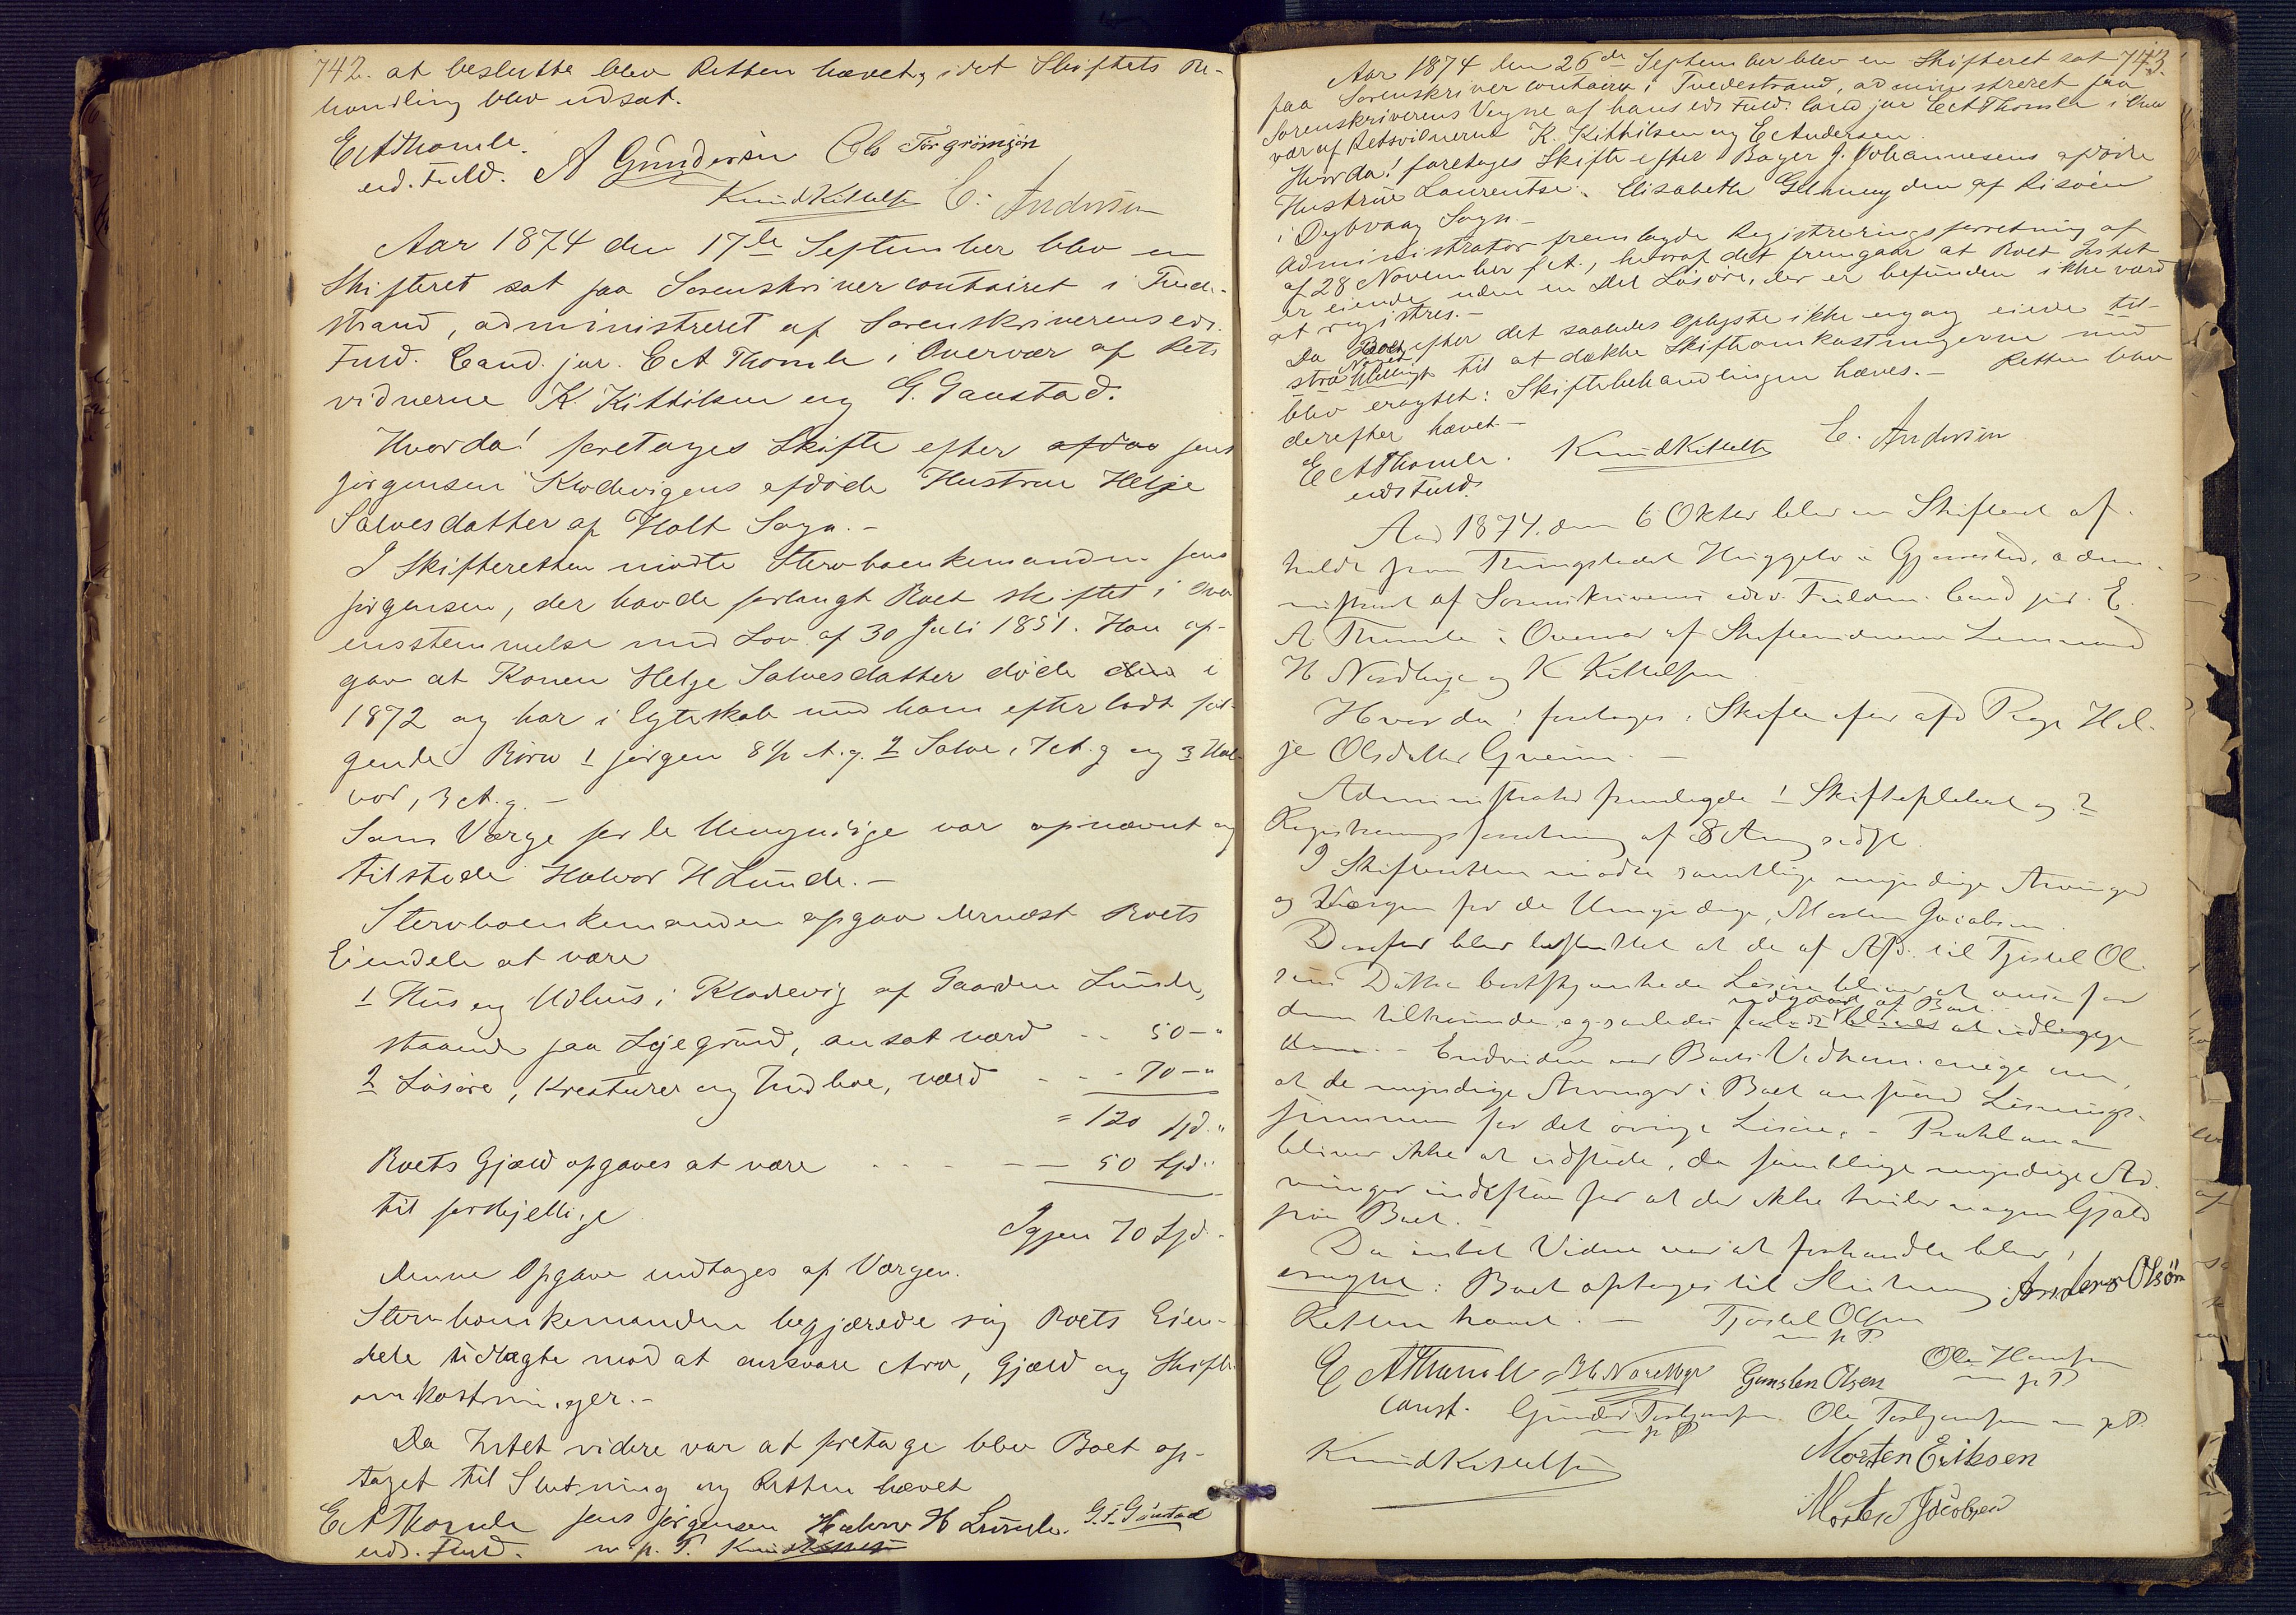 742. at beslutte blev Retten hævet, idet Skiftets Be-
handling blev udsat.
E A Thomle. A Gundersen Ole Torgrimsøn
ed. Fuld. Knud Kittelsen E. Andersen
Aar 1874 den 17de September blev en
Skifteret sat paa Sorenskrivercontoiret i Tvede-
strand, administreret af Sorenskriverens eds.
Fuld. Cand. jur. E A Thomle i Overvær af Rets
vidnerne K. Kittilsen og G. Gaustad.
Hvorda! foretages Skifte efter afdøe Jens
Jørgensen Klodevigens afdøde Hustrue Helje
Salvesdatter af Holt Sogn.-
I Skifteretten mødte Stervboenkemanden Jens
Jørgensen, der havde forlangt Boet skiftet i Over
ensstemmelse med Lov af 30 Juli 1851. Han op-
gav at Konen Helje Salvesdatter døde den i
1872 og har i Egteskab med ham efterladt føl-
gende Børn 1 Jørgen 8½ A.g. 2 Salve, 7 A.g og 3 Hal-
vor, 3 A.g.-
Som Værge for de Umyndige var opnævnt og
tilstede Halvor H Lunde.-
Stervboenkemanden opgav dernæst Boets
Eiendele at være
1 Hus og Udhus i Klodevig af Gaarden Lunde,
staaende paa Lejegrund, ansat værd - - 50-"
2 Løsøre, Kreaturer og Indboe, værd - - - 70-"
= 120 Spd. "
Boets Gjæld opgaves at være - - - - - 50 Spd."
til forskjellige
Igjen 70 Spd.-
Denne Opgave modtages af Værgen.
Stervboenkemanden begjærede sig Boets Eien-
dele udlagte mod at ansvare Arv, Gjæld og Skifte
omkostninger.-
Da Intet videre var at foretage blev Boet op-
taget til Slutning og Retten hævet
E A Thomle Jens Jørgensen Halvor H Lunde. G. T. Gaustad
eds. Fuld. m. p. P. Knud Kittelsen
Aar 1874 den 26de September blev en Skifteret sat 743.
paa Sorenskrivercontoiret i Tvedestrand, administreret paa
Sorenskriverens Vegne af hans eds Fuld. Cand jur E A Thomle i Over
vær af Retsvidnerne K. Kittilsen og E. Andersen.
Hvorda! foretages Skifte efter Bager J. Johannesens afdøde
Hustrue Laurentse Elisabeth af Risøen
i Dybvaag Sogn.-
Administrator fremlagde Registreringsforretning af
af 28 November f A., hvoraf det fremgaar at Boet Intet
er eiende uden en Del Løsøre, der er befunden ikke værd
at registres.-
Da Boet efter det saaledes Oplyste ikke engang eiede til-
Noget
strækkeligt til at dække Skifteomkostningerne med
blev eragtet: Skiftebehandlingen hæves.- Retten blev
derefter hævet.-
E A Thomle. Knud Kittelsen E. Andersen
eds Fuld.
Aar 1874. den 6 Oktbr blev en Skifteret af-
holdt paa Thingstedet i Gjerrestad, admi-
nistreret af Sorenskriverens edsv. Fuldm. Cand jur. E.
A Thomle i Overvær af Skiftevidnerne Lensmand
H Nordby og K Kittelsen
Hvor da! foretages Skifte efter afd Pige Hel-
je Olsdatter
Administrator fremlagde 1 Skifteplakat og 2
Registreringsforretning af 8 Aug sidstl.
I Skifteretten mødte samtlige myndige Arvinger
og Værgen for de Umyndige, Morten Jacobsen.
Derefter blev besluttet at de af Afd. til Tjostel Ol-
sens Datter bortskjænkede Løsøre bliver at anse som
udgaaet af Boet.
dem tilhørende, og saaledes at udlægge
dem.- Endvidere var Boets Vedkom. enige om,
at de myndige Arvinger i Boet Løsnings-
summen for det øvrige Løsøre.- Proklama
bliver ikke at udstede, da samtlige myndige Ar-
vinger indestaa for at der ikke hviler nogen Gjæld
paa Boet.-
Da intet Videre var at forhandle blev
eragtet: Boet optages til Slutning. Anders Olsøn
Retten hævet.- Tjostel Olsen
m p P
E A Thomle H Nordby Gunsten Olsen Ole Hansen
m p P
const. Gunder Torbjørnsen Ole Torbjørnsen m p P.
m p P
Knud Kittelsen Morten Eriksen
Morten Jacobsen